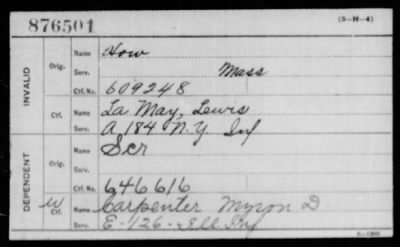 876501
(3-H-4)
INVALID
Orig.
Name How
Serv. Mass
Ctf. No. 609248
Ctf.
Name La May, Lewis
Serv. A 184 N.Y. Inf
DEPENDENT
Orig.
Name Scr
Serv.
Ctf. No. 646616
W Ctf.
Name Carpenter Myron D.
Serv. E-126-Ill Inf